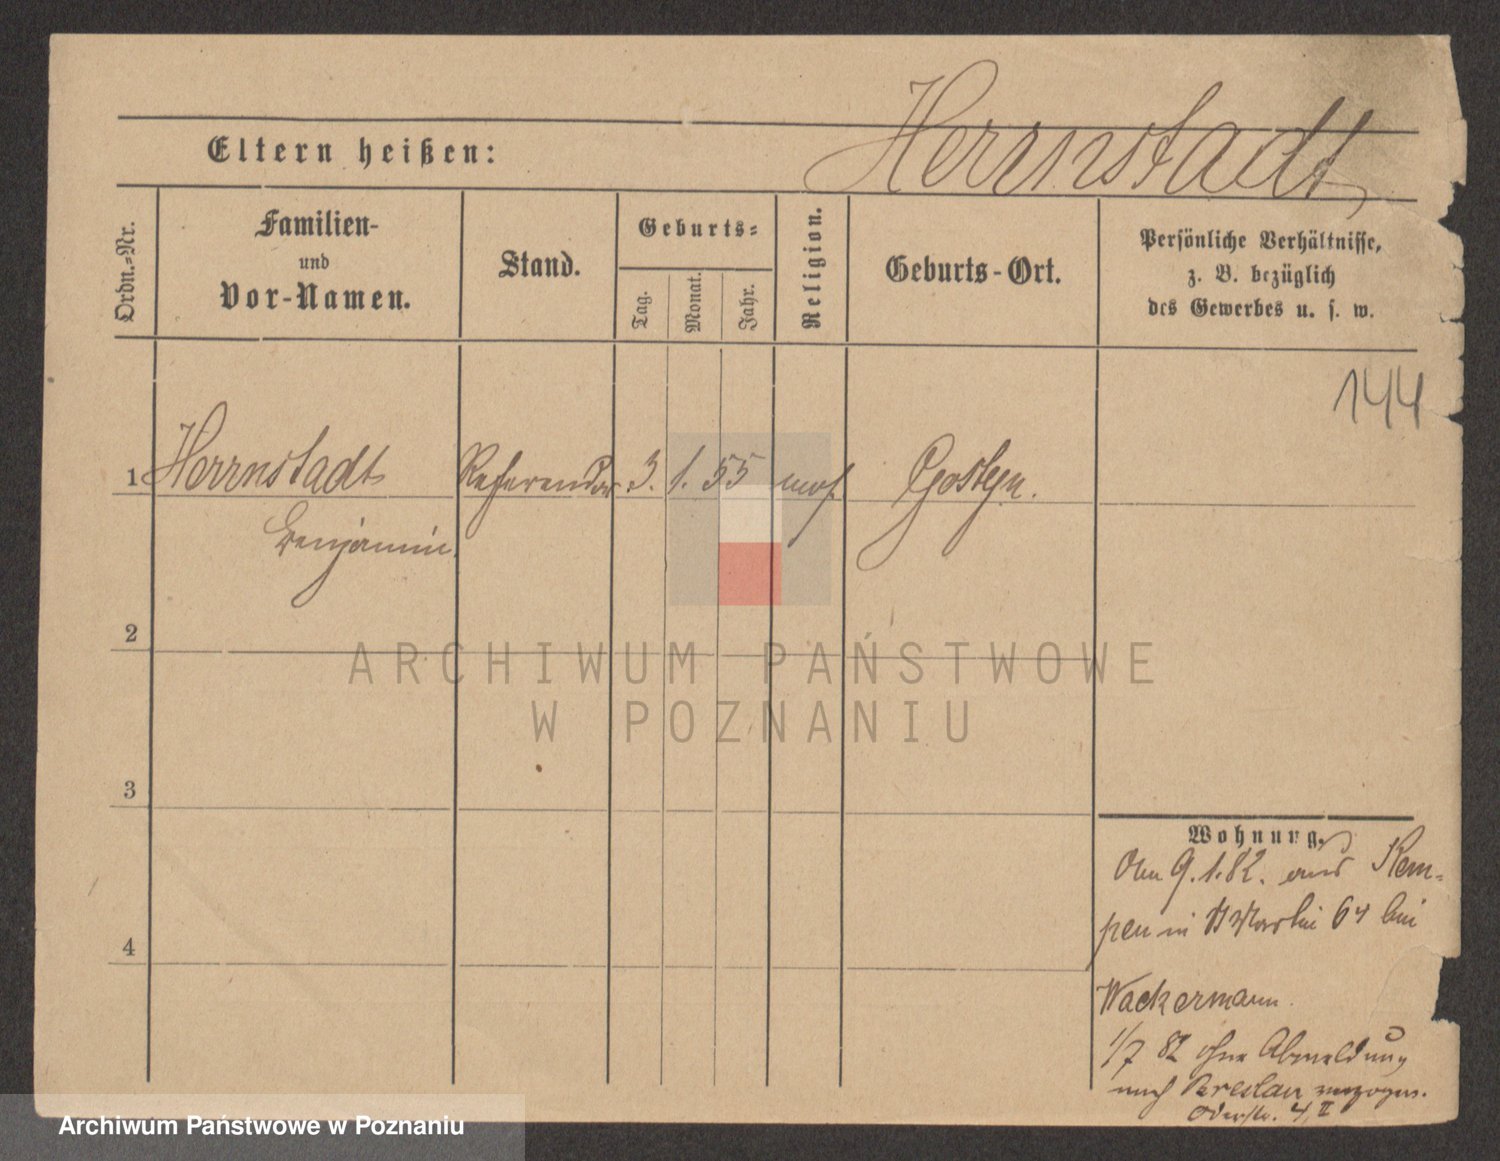 Herrnstadt
Eltern heißen:
Ordn.-Nr.
Familien-
und
Vor-Namen.
Stand.
Geburts-
Tag.
Monat.
Jahr.
Religion.
Geburts-Ort.
Persönliche Verhältnisse,
z. B. bezüglich
des Gewerbes u. s. w.
144
1 Herrnstadt Referendar 3. 1. 55 mos. Gostyn.
Benjamin.
2
3
4
Wohnung.
9.1.82. aus Kem-
pen in St Martin 64 bei
Wackermann.
1/7 82 ohne Abmeldung
nach Breslau verzogen.
Oderstr. 4, II
ARCHIWUM PAŃSTWOWE
W POZNANIU
Archiwum Państwowe w Poznaniu